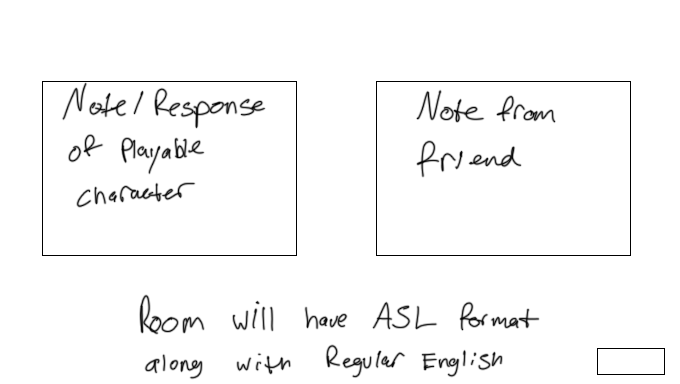 Note/Response
of Playable
character
Note from
friend
Room will have ASL format
along with Regular English